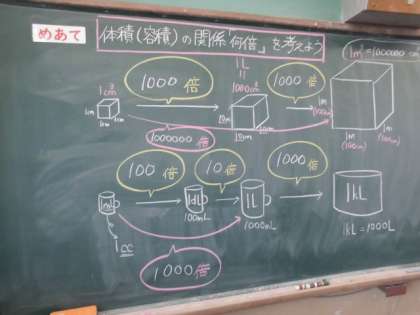 めあて
体積(容積)の関係「何倍」を考えよう
1L
1000倍
1000cm³
1000倍
1m³=1000000cm
1cm³
1m
(100cm)
1m
(100cm)
1m
(100cm)
1000000倍
100倍
10倍
1000倍
1mL
1dL
100mL
1L
1000mL
1kL
1kL=1000L
1cc
1000倍